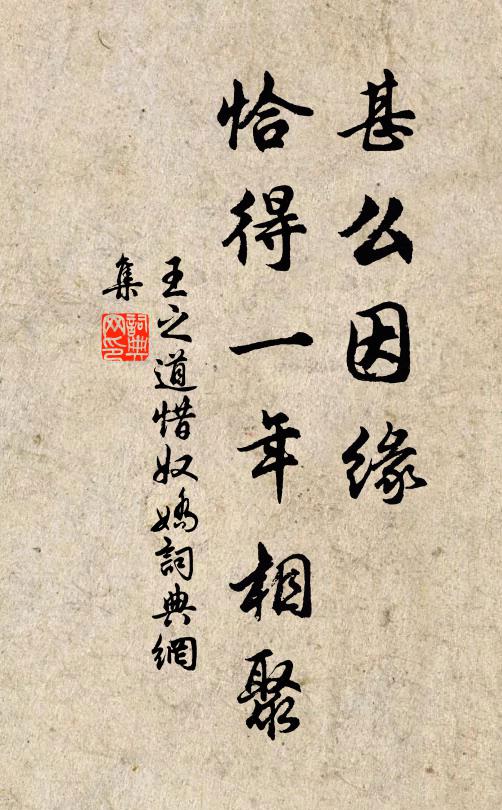 甚么因缘
恰得一年相聚
王之道惜奴嬌詞典網
集
詞典
网印